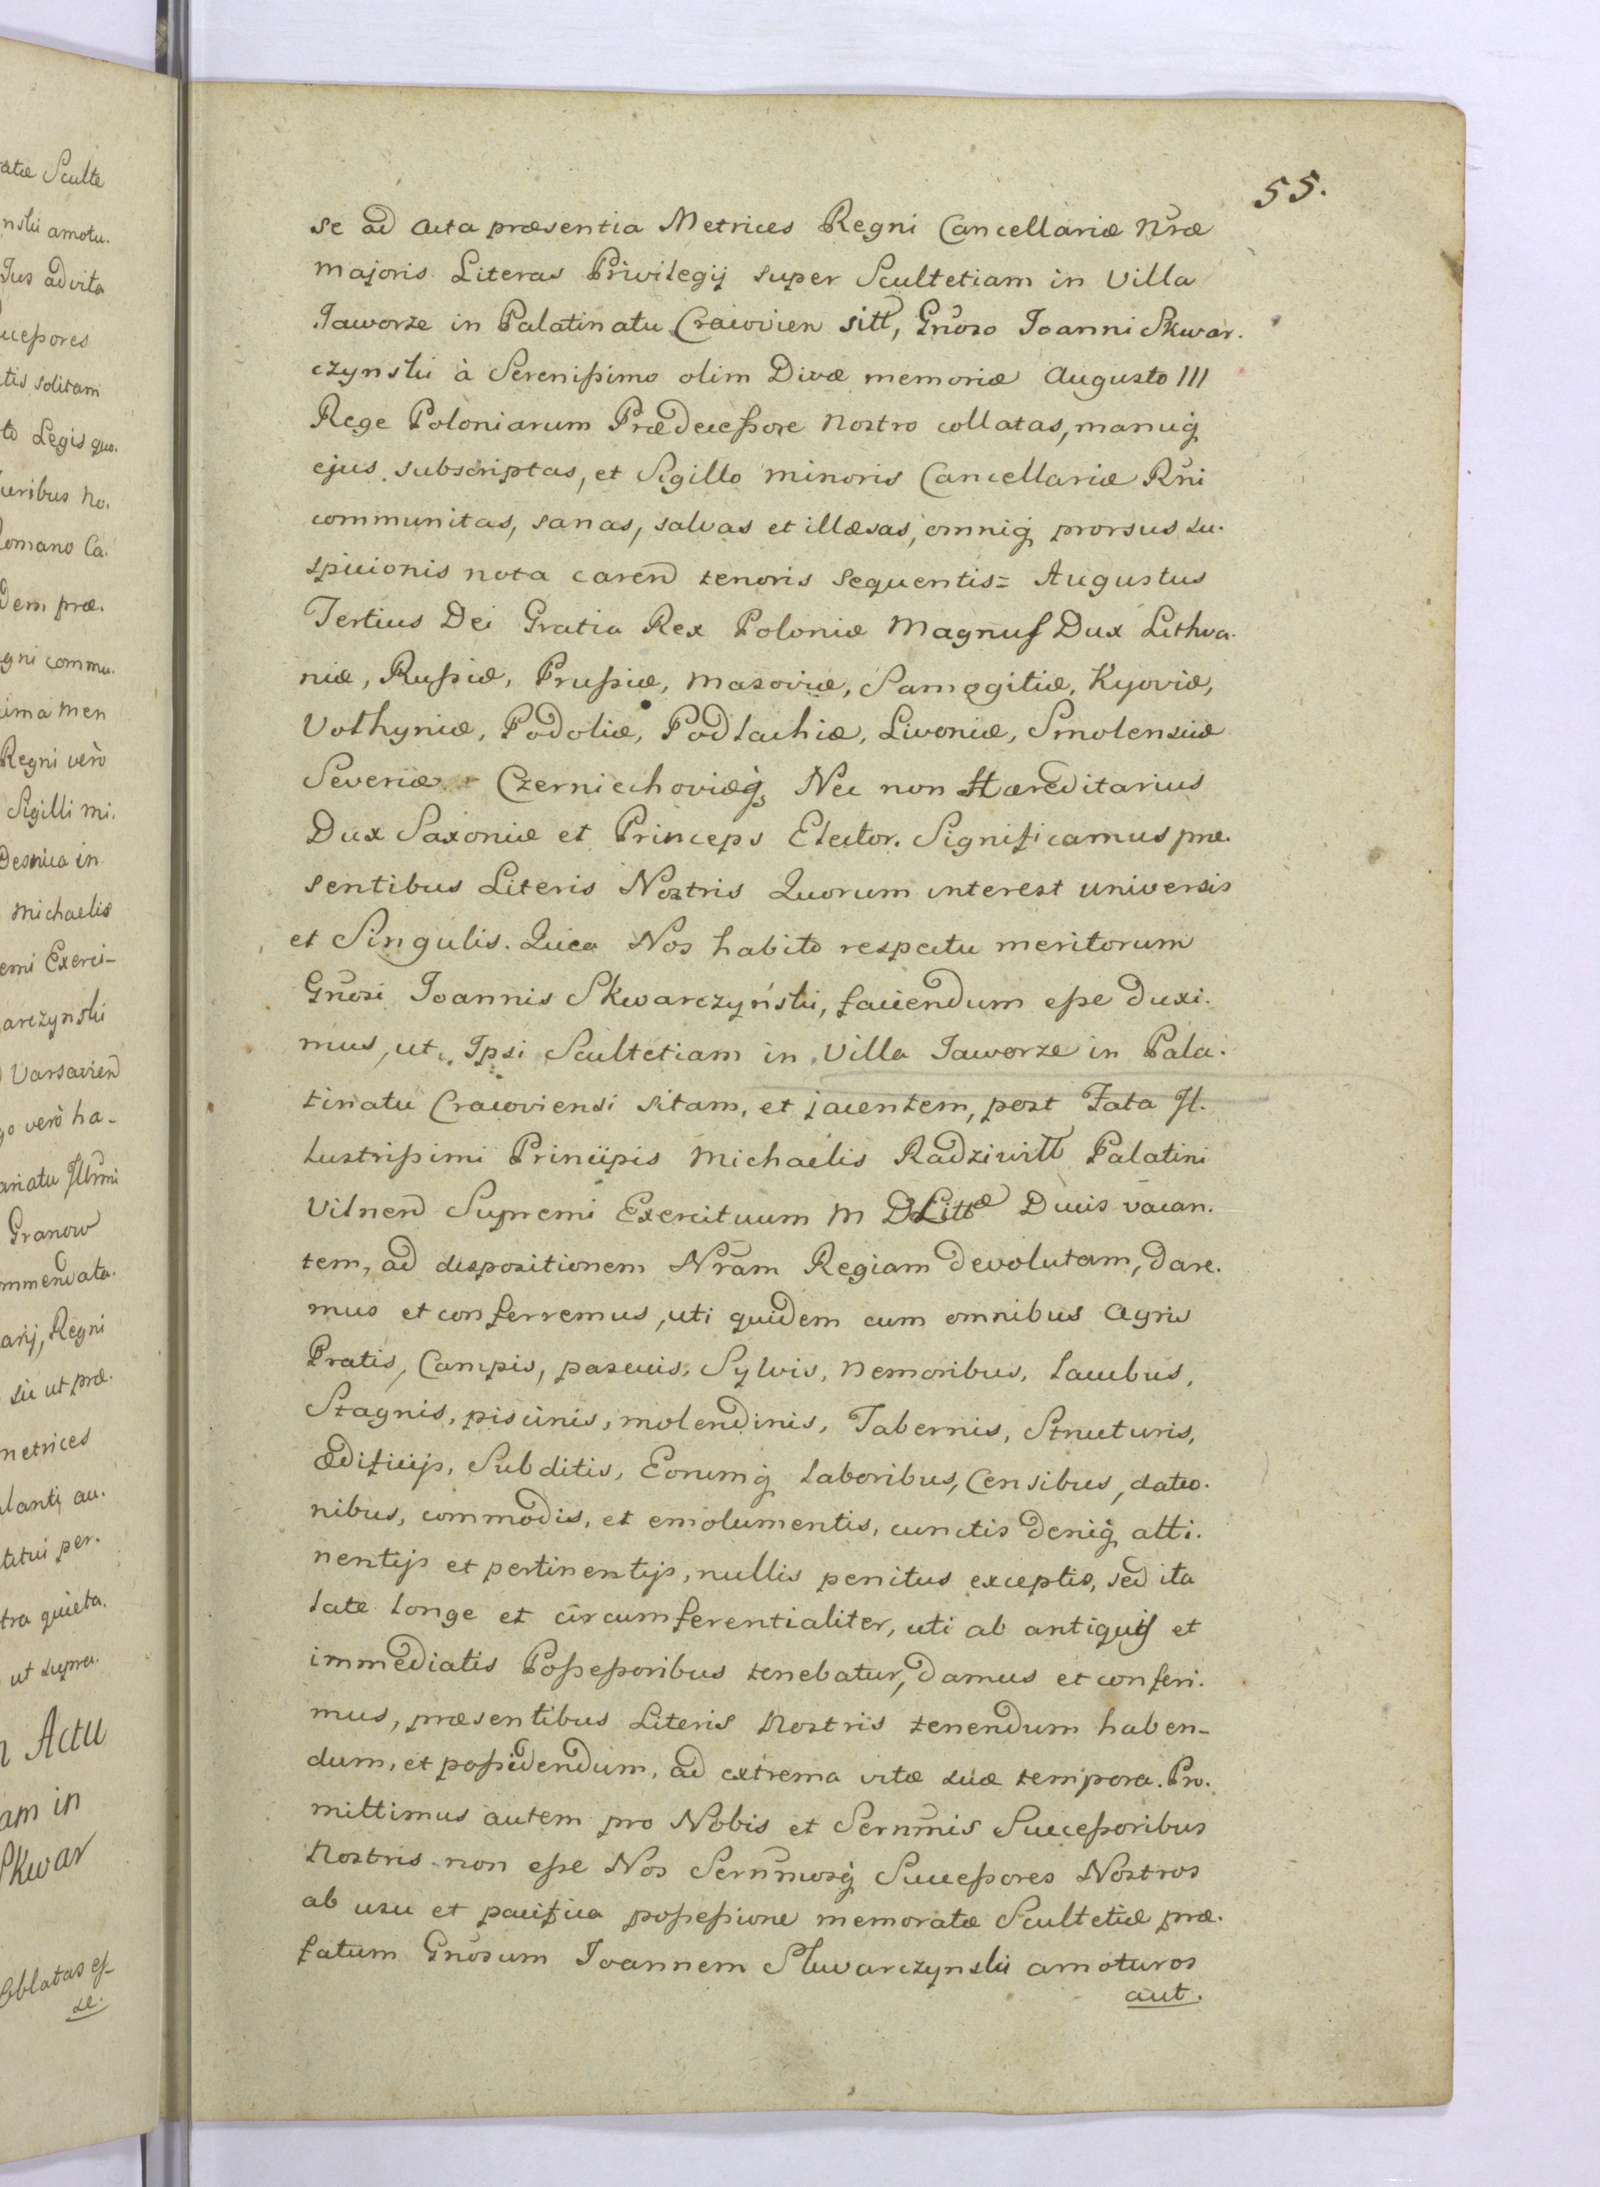 55.
se ad Acta præsentia Metrices Regni Cancellariæ Nræ
majoris Literas Privilegij super Scultetiam in Villa
Jaworze in Palatinatu Cracovien sitt, Gnoso Joanni Skwar.
czynski à Serenißimo olim Divæ memoriæ Augusto III
Rege Poloniarum Prædeceßore Nostro collatas, manuq
ejus subscriptas, et Sigillo minoris Cancellariæ Rni
communitas, sanas, salvas et illæsas, omniq prorsus su.
spicionis nota caren tenoris sequentis= Augustus
Tertius Dei Gratia Rex Poloniæ Magnus Dux Lithva.
niæ, Rußiæ, Prußiæ, Masoviæ, Samogitiæ, Kyoviæ,
Volhyniæ, Podoliæ, Podlachiæ, Livoniæ, Smolensciæ
Severiæ Czerniechoviæq Nec non Hæreditarius
Dux Saxoniæ et Princeps Elector. Significamus præ.
sentibus Literis Nostris Quorum interest universis
et Singulis. Quia Nos habito respectu meritorum
Gnosi Joannis Skwarczyński, faciendum eße duxi.
mus, ut Ipsi Scultetiam in Villa Jaworze in Pala.
tinatu Cracoviensi sitam, et jacentem, post Fata Il.
lustrißimi Principis Michaelis Radziwill Palatini
Vilnen Supremi Exercituum M D Littæ Ducis vacan.
tem, ad dispositionem Nram Regiam devolutam, dare.
mus et conferremus, uti quidem cum omnibus Agris
Pratis, Campis, pascuis, Sylvis, Nemoribus, lacubus,
Stagnis, piscinis, molendinis, Tabernis, Structuris,
ædificijs, Subditis, Eorumq laboribus, Censibus, datio.
nibus, commodis, et emolumentis, cunctis deniq atti.
nentijs et pertinentijs, nullis penitus exceptis, sed ita
late longe et circumferentialiter, uti ab antiquis et
immediatis Poßeßoribus tenebatur, damus et conferi.
mus, præsentibus Literis Nostris tenendum haben-
dum, et poßidendum, ad extrema vitæ suæ tempora. Pro.
mittimus autem pro Nobis et Sernmis Succeßoribus
Nostris non eße Nos Sernmosq Succeßores Nostros
ab usu et pacifica poßeßione memoratæ Scultetiæ præ.
fatum Gnosum Joannem Skwarczynski amoturos
aut.